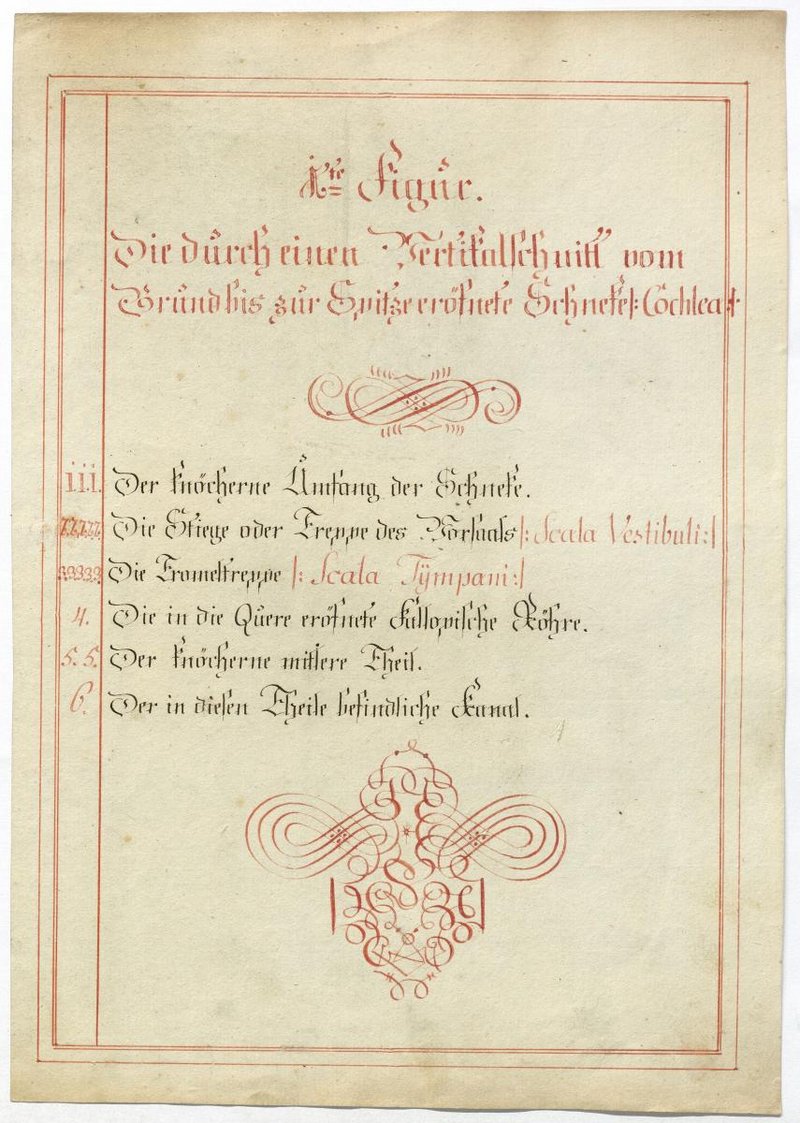 1te Figur.
Die durch einen Vertikalschnitt vom
Grund bis zur Spitze eröfnete Schneke|: Cochlea :|
1.1.1. Der knöcherne Umfang der Schneke.
2.2.2.2.2. Die Stiege oder Treppe des Vorsaals|: Scala Vestibuli :|
3.3.3.3.3. Die Tromeltreppe |: Scala Tÿmpani :|
4. Die in die Quere eröfnete Fallopische Röhre.
5. 5. Der knöcherne mittlere Theil.
6. Der in diesen Theile befindliche Kanal.